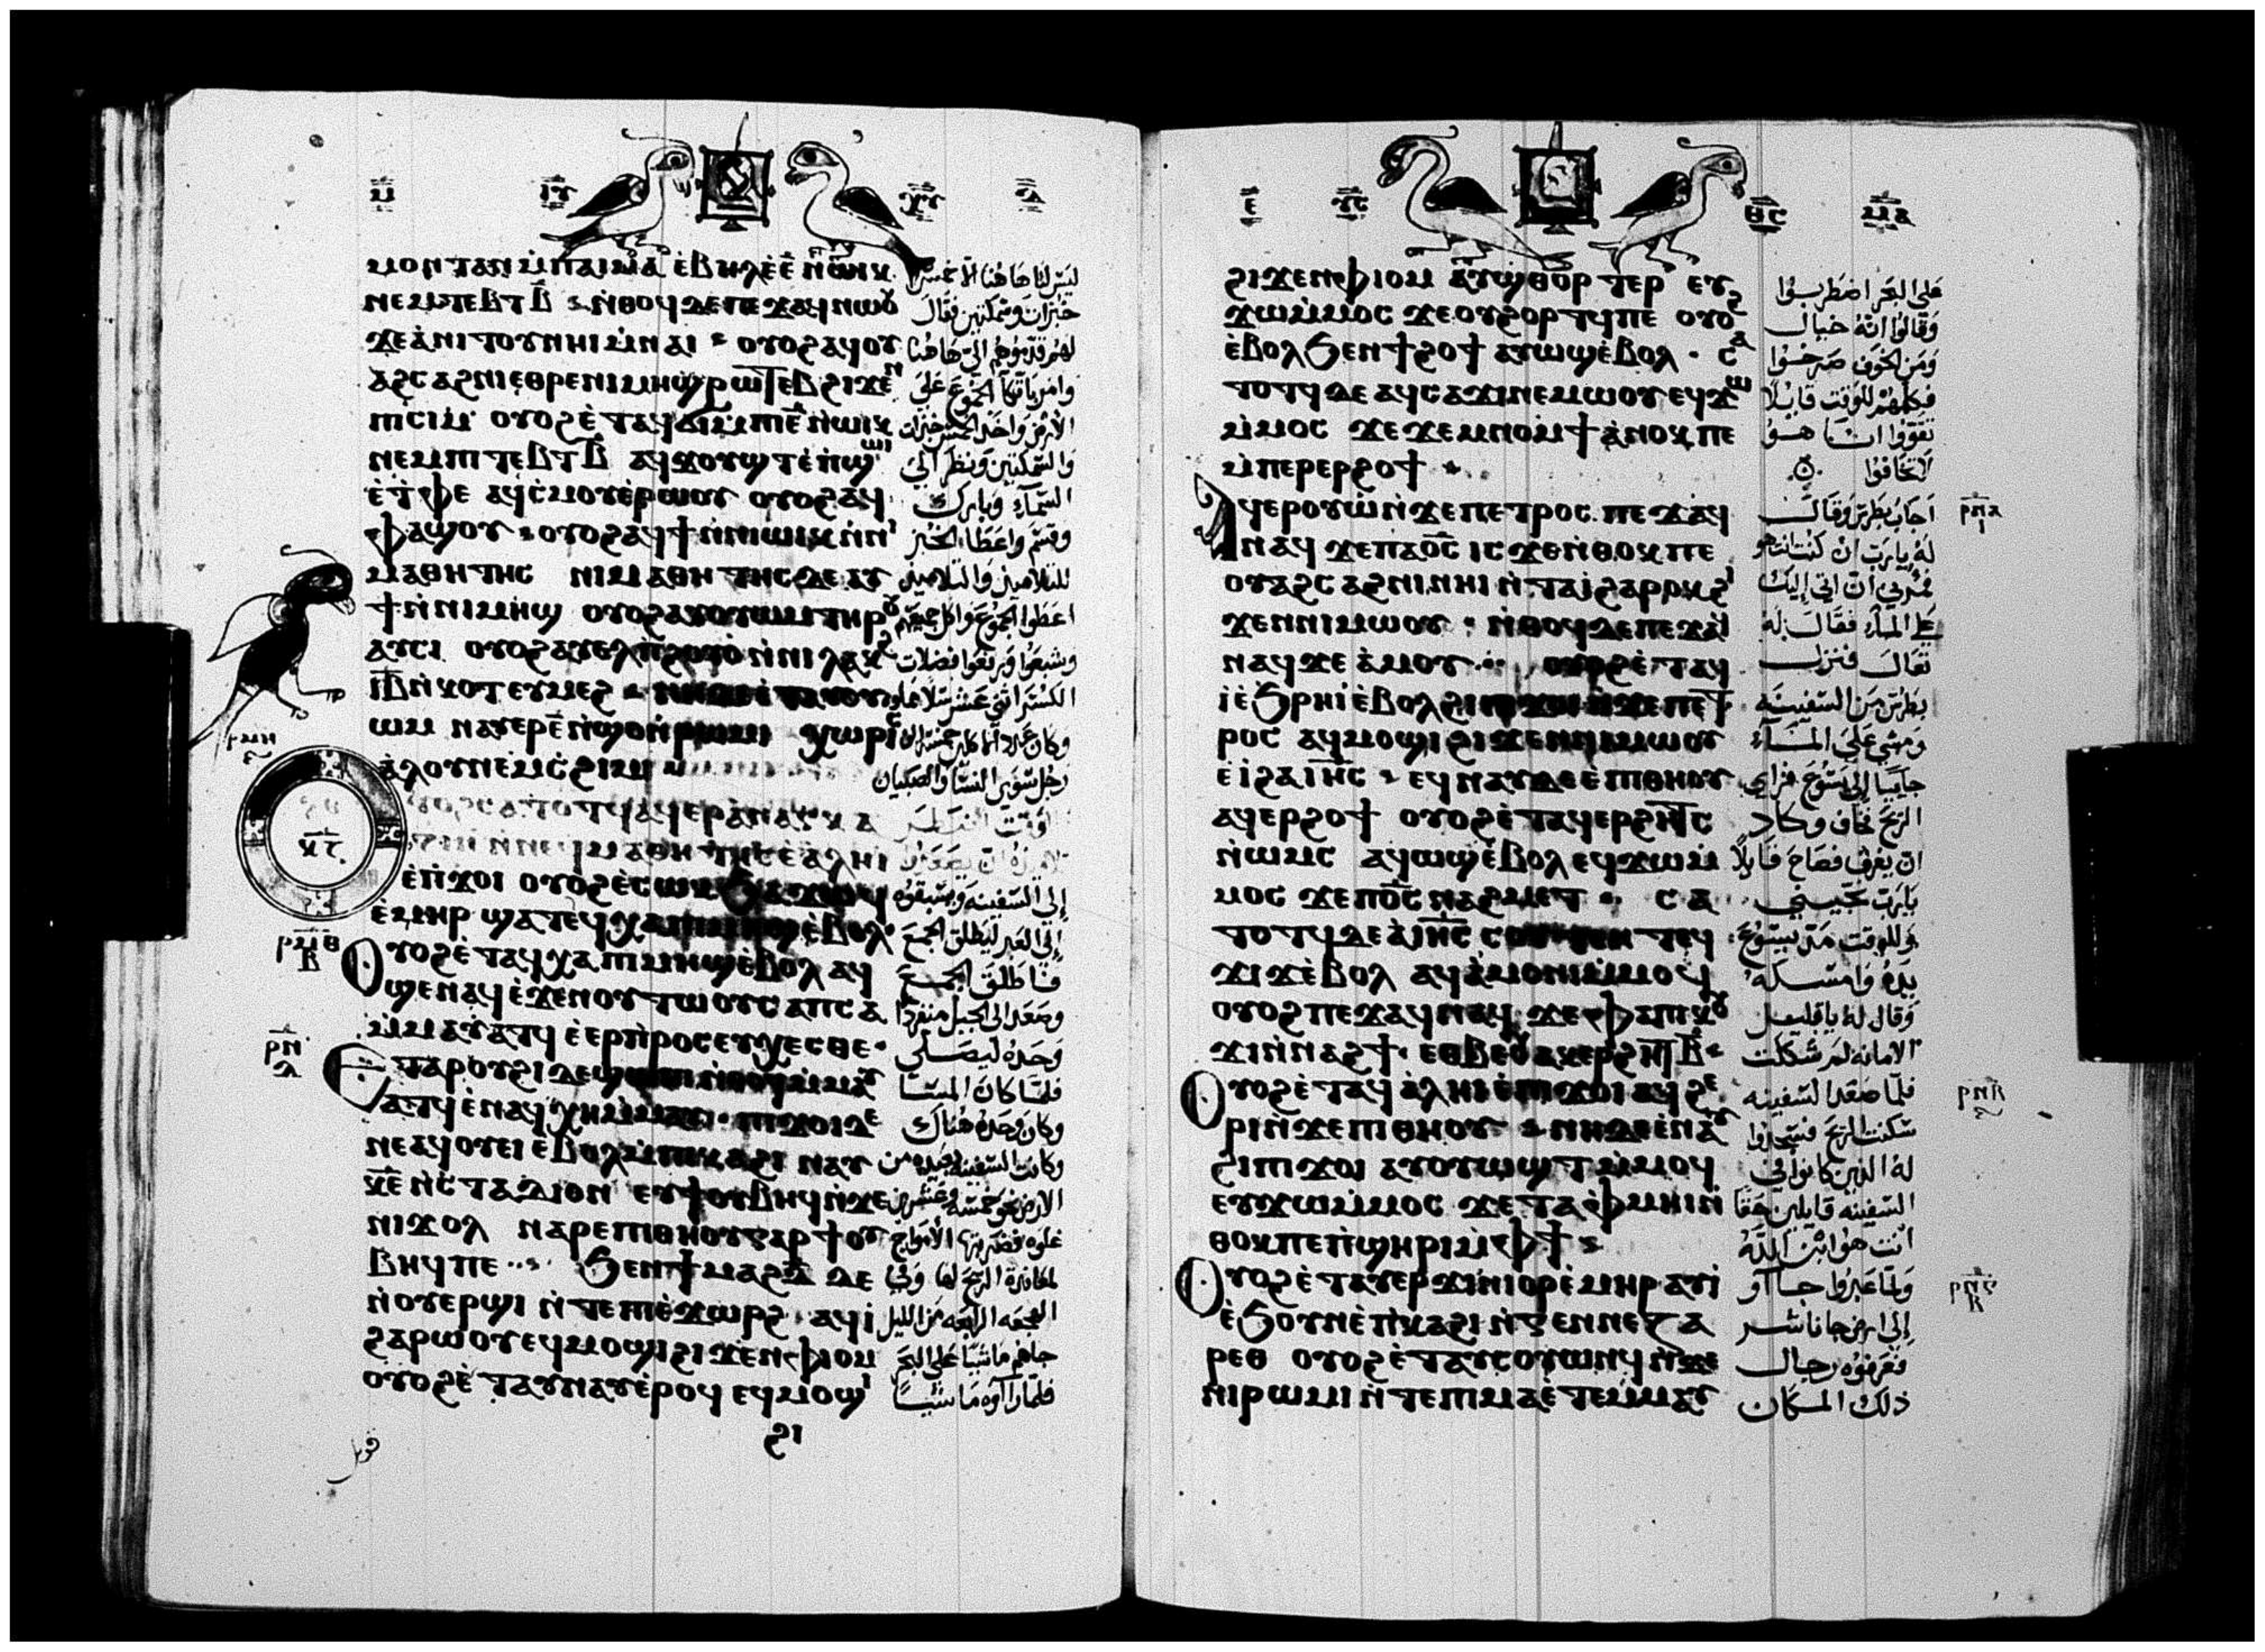 ⲙⲟⲛ ⲧⲁⲛ ⲙ̀ⲡⲁⲓⲙⲁ ⲉ̀ⲃⲏⲗ ⲉ̀ⲉ̅ ⲛ̀ⲱⲓⲕ
ⲛⲉⲙ ⲧⲉⲃⲧ ⲃ̅ ⲛ̀ⲑⲟϥ ⲇⲉ ⲡⲉϫⲁϥ ⲛⲱⲟⲩ
ϫⲉ ⲁ̀ⲛⲓⲧⲟⲩ ⲛⲏⲓ ⲙ̀ⲛⲁⲓ ⲟⲩⲟϩ ⲁϥⲟⲩ
ⲁϩⲥⲁϩⲛⲓ ⲉⲑⲣⲉ ⲛⲓⲙⲏϣ ⲣⲱⲧⲉⲃ ϩⲓϫⲉⲛ
ⲡⲓⲥⲓⲙ ⲟⲩⲟϩ ⲉ̀ⲧⲁϥϭⲓ ⲙ̀ⲡⲓⲉ̅ ⲛ̀ⲱⲓⲕ
ⲛⲉⲙ ⲡⲓⲧⲉⲃⲧ ⲃ̅ ⲁϥϫⲟⲩϣⲧ ⲉ̀ⲡϣⲱⲓ
ⲉ̀ⲧ̀ⲫⲉ ⲁϥⲥ̀ⲙⲟⲩ ⲉ̀ⲣⲱⲟⲩ ⲟⲩⲟϩ ⲁϥ
ⲫⲁϣⲟⲩ ⲟⲩⲟϩ ⲁϥϯ ⲛ̀ⲛⲓⲱⲓⲕ ⲛ̀ⲛⲓ
ⲙⲁⲑⲏⲧⲏⲥ ⲛⲓⲙⲁⲑⲏⲧⲏⲥ ⲇⲉ ⲁⲩ
ϯ ⲛ̀ⲛⲓⲙⲏϣ ⲟⲩⲟϩ ⲁⲩⲟⲩⲱⲙ ⲧⲏⲣⲟⲩ
ⲁⲩⲥⲓ ⲟⲩⲟϩ ⲁⲩⲉⲗ ⲡ̀ϩⲟⲩⲟ̀ ⲛ̀ⲛⲓⲗⲁⲕϩ
ⲓ̅ⲃ̅ ⲛ̀ⲕⲟⲧ ⲉⲩⲙⲉϩ ⲛⲏ ⲇⲉ ⲉ̀ⲧⲁⲩⲟⲩ
ⲱⲙ ⲛⲁⲩⲉⲣ ⲉ̅ ⲛ̀ϣⲟ ⲛ̀ⲣⲱⲙⲓ ⲭⲱⲣⲓⲥ
ⲁ̀ⲗⲟⲩ ⲛⲉⲙ ⲥ̀ϩⲓⲙⲓ
ⲟⲩⲟϩ ⲥⲁⲧⲟⲧϥ ⲁϥⲉⲣⲁⲛⲁⲅⲕⲁ
ⲍⲓⲛ ⲛ̀ⲛⲉϥⲙⲁⲑⲏⲧⲏⲥ ⲉ̀ⲁⲗⲏⲓ
ⲉ̀ⲡ̀ϫⲟⲓ ⲟⲩⲟϩ ⲉ̀ⲥⲱⲕ ϧⲁϫⲱϥ
ⲉ̀ⲙⲏⲣ ϣⲁⲧⲉϥⲭⲁ ⲡⲓⲙⲏϣ ⲉ̀ⲃⲟⲗ
ⲟⲩⲟϩ ⲉ̀ⲧⲁϥⲭⲁ ⲡⲓⲙⲏϣ ⲉ̀ⲃⲟⲗ ⲁϥ
ϣⲉⲛⲁϥ ⲉ̀ϫⲉⲛ ⲟⲩⲧⲱⲟⲩ ⲥⲁⲡⲥⲁ
ⲙ̀ⲙⲁⲩⲁⲧϥ ⲉ̀ⲉⲣⲡ̀ⲣⲟⲥⲉⲩⲭⲉⲥⲑⲉ
ⲉⲧⲁ ⲣⲟⲩϩⲓ ⲇⲉ ϣⲱⲡⲓ ⲛⲁϥⲙ̀ⲙⲁⲩ
ⲁⲧϥ ⲉ̀ⲛⲁϥⲭⲏ ⲙ̀ⲙⲁⲩ ⲡⲓϫⲟⲓ ⲇⲉ
ⲛⲉⲁϥⲟⲩⲉⲓ ⲉⲃⲟⲗ ⲙ̀ⲡⲓⲕⲁϩⲓ ⲛⲁⲩ
ⲕ̅ⲉ̅ ⲛ̀ⲥⲧⲁⲇⲓⲟⲛ ⲉⲩϯⲟⲩⲃⲏϥ ⲛ̀ϫⲉ
ⲛⲓϫⲟⲗ ⲛⲁⲣⲉ ⲡⲓⲑⲏⲟⲩ ⲅⲁⲣ ϯⲟⲩ
ⲃⲏϥ ⲡⲉ ϧⲉⲛ ϯⲙⲁϩⲇ̅ ⲇⲉ
ⲛ̀ⲟⲩⲉⲣϣⲓ ⲛ̀ⲧⲉ ⲡⲓⲉ̀ϫⲱⲣϩ ⲁϥⲓ̀
ϩⲁⲣⲱⲟⲩ ⲉϥⲙⲟϣⲓ ϩⲓϫⲉⲛ ⲫⲓⲟⲙ
ⲟⲩⲟϩ ⲉ̀ⲧⲁⲩⲛⲁⲩ ⲉ̀ⲣⲟϥ ⲉϥⲙⲟϣⲓ
ϩⲓ
ليس لنا هاهنا الا خمس
خبزات وسمكتين فقال
لهم قدموهم الى هاهنا
وامر باتكا الجموع على
الارض واخذ الخمس خبزات
والسمكتين ونظر الى
السماء وبارك
وقسم واعطا الخبز
للتلاميذ والتلاميذ
اعطوا الجموع فاكل جميعهم
وشبعوا ورفعوا فضلات
رجل سوى النسا والصبيان
الى السفينة ويسبقوه
الى العبر ليطلق الجمع
فاطلق الجمع
وصعد الى الجبل منفردا
وحده ليصلي
فلما كان المسا
وكان وحده هناك
الهجعه الرابعه من الليل
جاهم ماشيا على البحر
فلما راوه ماشيا
ϩⲓϫⲉⲛ ⲫⲓⲟⲙ ⲁⲩϣⲑⲟⲣⲧⲉⲣ ⲉⲩ
ϫⲱⲙ̀ⲙⲟⲥ ϫⲉ ⲟⲩϩⲟⲣⲧϥ ⲡⲉ ⲟⲩⲟϩ
ⲉ̀ⲃⲟⲗ ϧⲉⲛ ϯϩⲟϯ ⲁⲩⲱϣ ⲉ̀ⲃⲟⲗ ⲥⲁ
ⲧⲟⲧϥ ⲇⲉ ⲁϥⲥⲁϫⲓ ⲛⲉⲙⲱⲟⲩ ⲉϥϫⲱ
ⲙ̀ⲙⲟⲥ ϫⲉ ϫⲉⲙⲛⲟⲙϯ ⲁ̀ⲛⲟⲕ ⲡⲉ
ⲙ̀ⲡⲉⲣⲉⲣϩⲟϯ
ⲁϥⲉⲣⲟⲩⲱ̀ ⲛ̀ϫⲉ ⲡⲉⲧⲣⲟⲥ ⲡⲉϫⲁϥ
ⲛⲁϥ ϫⲉ ⲡⲁⲟ̅ⲥ̅ ⲓⲥϫⲉ ⲛ̀ⲑⲟⲕ ⲡⲉ
ⲟⲩⲁϩⲥⲁϩⲛⲓ ⲛⲏⲓ ⲛ̀ⲧⲁⲓ̀ ϩⲁⲣⲟⲕ ϩⲓ
ϫⲉⲛ ⲛⲓⲙⲱⲟⲩ ⲛ̀ⲑⲟϥ ⲇⲉ ⲡⲉϫⲁϥ
ⲛⲁϥ ϫⲉ ⲁ̀ⲙⲟⲩ ⲟⲩⲟϩ ⲉ̀ⲧⲁϥ
ⲓ̀ ⲉ̀ϧⲣⲏⲓ ⲉ̀ⲃⲟⲗ ϩⲓ ⲡϫⲟⲓ ⲛ̀ϫⲉ ⲡⲉⲧ
ⲣⲟⲥ ⲁϥⲙⲟϣⲓ ϩⲓϫⲉⲛ ⲛⲓⲙⲱⲟⲩ
ⲉ̀ⲓ̀ ϩⲁ ⲓ̅ⲏ̅ⲥ̅ ⲉϥⲛⲁⲩ ⲇⲉ ⲉ̀ⲡⲓⲑⲏⲟⲩ
ⲁϥⲉⲣϩⲟϯ ⲟⲩⲟϩ ⲉ̀ⲧⲁϥⲉⲣϩⲏⲧⲥ
ⲛ̀ⲱⲙⲥ ⲁϥⲱϣ ⲉ̀ⲃⲟⲗ ⲉϥϫⲱⲙ̀
ⲙⲟⲥ ϫⲉ ⲡⲟ̅ⲥ̅ ⲛⲁϩⲙⲉⲧ ⲥⲁ
ⲧⲟⲧϥ ⲇⲉ ⲁ̀ ⲓ̅ⲏ̅ⲥ̅ ⲥⲟⲩⲧⲉⲛ ⲧⲉϥ
ϫⲓϫ ⲉ̀ⲃⲟⲗ ⲁϥⲁ̀ⲙⲟⲛⲓ ⲙ̀ⲙⲟϥ
ⲟⲩⲟϩ ⲡⲉϫⲁϥ ⲛⲁϥ ϫⲉ ⲫⲁ ⲡⲓⲕⲟⲩ
ϫⲓ ⲛ̀ⲛⲁϩϯ ⲉⲑⲃⲉⲟⲩ ⲁⲕⲉⲣϩⲏⲧ ⲃ̅
ⲟⲩⲟϩ ⲉ̀ⲧⲁϥⲁ̀ⲗⲏⲓ ⲉ̀ⲡⲓϫⲟⲓ ⲁϥϩⲉ
ⲣⲓ ⲛ̀ϫⲉ ⲡⲓⲑⲏⲟⲩ ⲛⲏ ⲇⲉ ⲉ̀ⲛⲁⲩ
ϩⲓ ⲡⲓϫⲟⲓ ⲁⲩⲟⲩⲱϣⲧ ⲙ̀ⲙⲟϥ
ⲉⲩϫⲱⲙ̀ⲙⲟⲥ ϫⲉ ⲧⲁⲫⲙⲏⲓ ⲛ̀
ⲑⲟⲕ ⲡⲉ ⲡ̀ϣⲏⲣⲓ ⲙ̀ⲫϯ
ⲟⲩⲟϩ ⲉ̀ⲧⲁⲩⲉⲣϫⲓⲛⲓⲟⲣ ⲉ̀ⲙⲏⲣ ⲁⲩⲓ̀
ⲉ̀ϧⲟⲩⲛ ⲉ̀ⲡ̀ⲕⲁϩⲓ ⲛ̀ⲅⲉⲛⲛⲉⲍⲁ
ⲣⲉⲑ ⲟⲩⲟϩ ⲉ̀ⲧⲁⲩⲥⲟⲩⲱⲛϥ ⲛ̀ϫⲉ
ⲛⲓⲣⲱⲙⲓ ⲛ̀ⲧⲉ ⲡⲓⲙⲁ ⲉ̀ⲧⲉⲙⲙⲁⲩ
على البحر اضطربوا
وقالوا انه خيال
ومن الخوف صرخوا
فكلمهم للوقت قايلا
تقووا انا هو
لا تخافوا
اجاب بطرس وقال
له يارب ان كنت انت هو
فمرني ان اتي اليك
على الماء فقال له
تعال فنزل
بطرس من السفينه
ومشي على الماء
جاييا الى يسوع فراي
الريح فخاف وكاد
ان يغرق فصاح قايلا
يارب نجيني
وللوقت مد يسوع
يده وامسكه
وقال له ياقليل
الامانه لم شككت
فلما صعد السفينه
سكنت الريح فسجدوا
له الذين كانوا في
السفينه قايلين حقا
انت هو ابن الله
ولما عبروا جاآو
الى ارض جاناشر
فعرفوه رجال
ذلك المكان